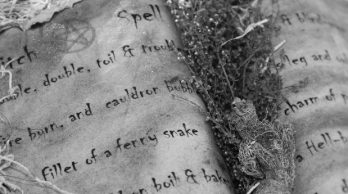 Spell
double, toil & trouble
burn, and cauldron bubble
fillet of a fenny snake
boil & bake
& blind
leg and
charm of
a Hell-b